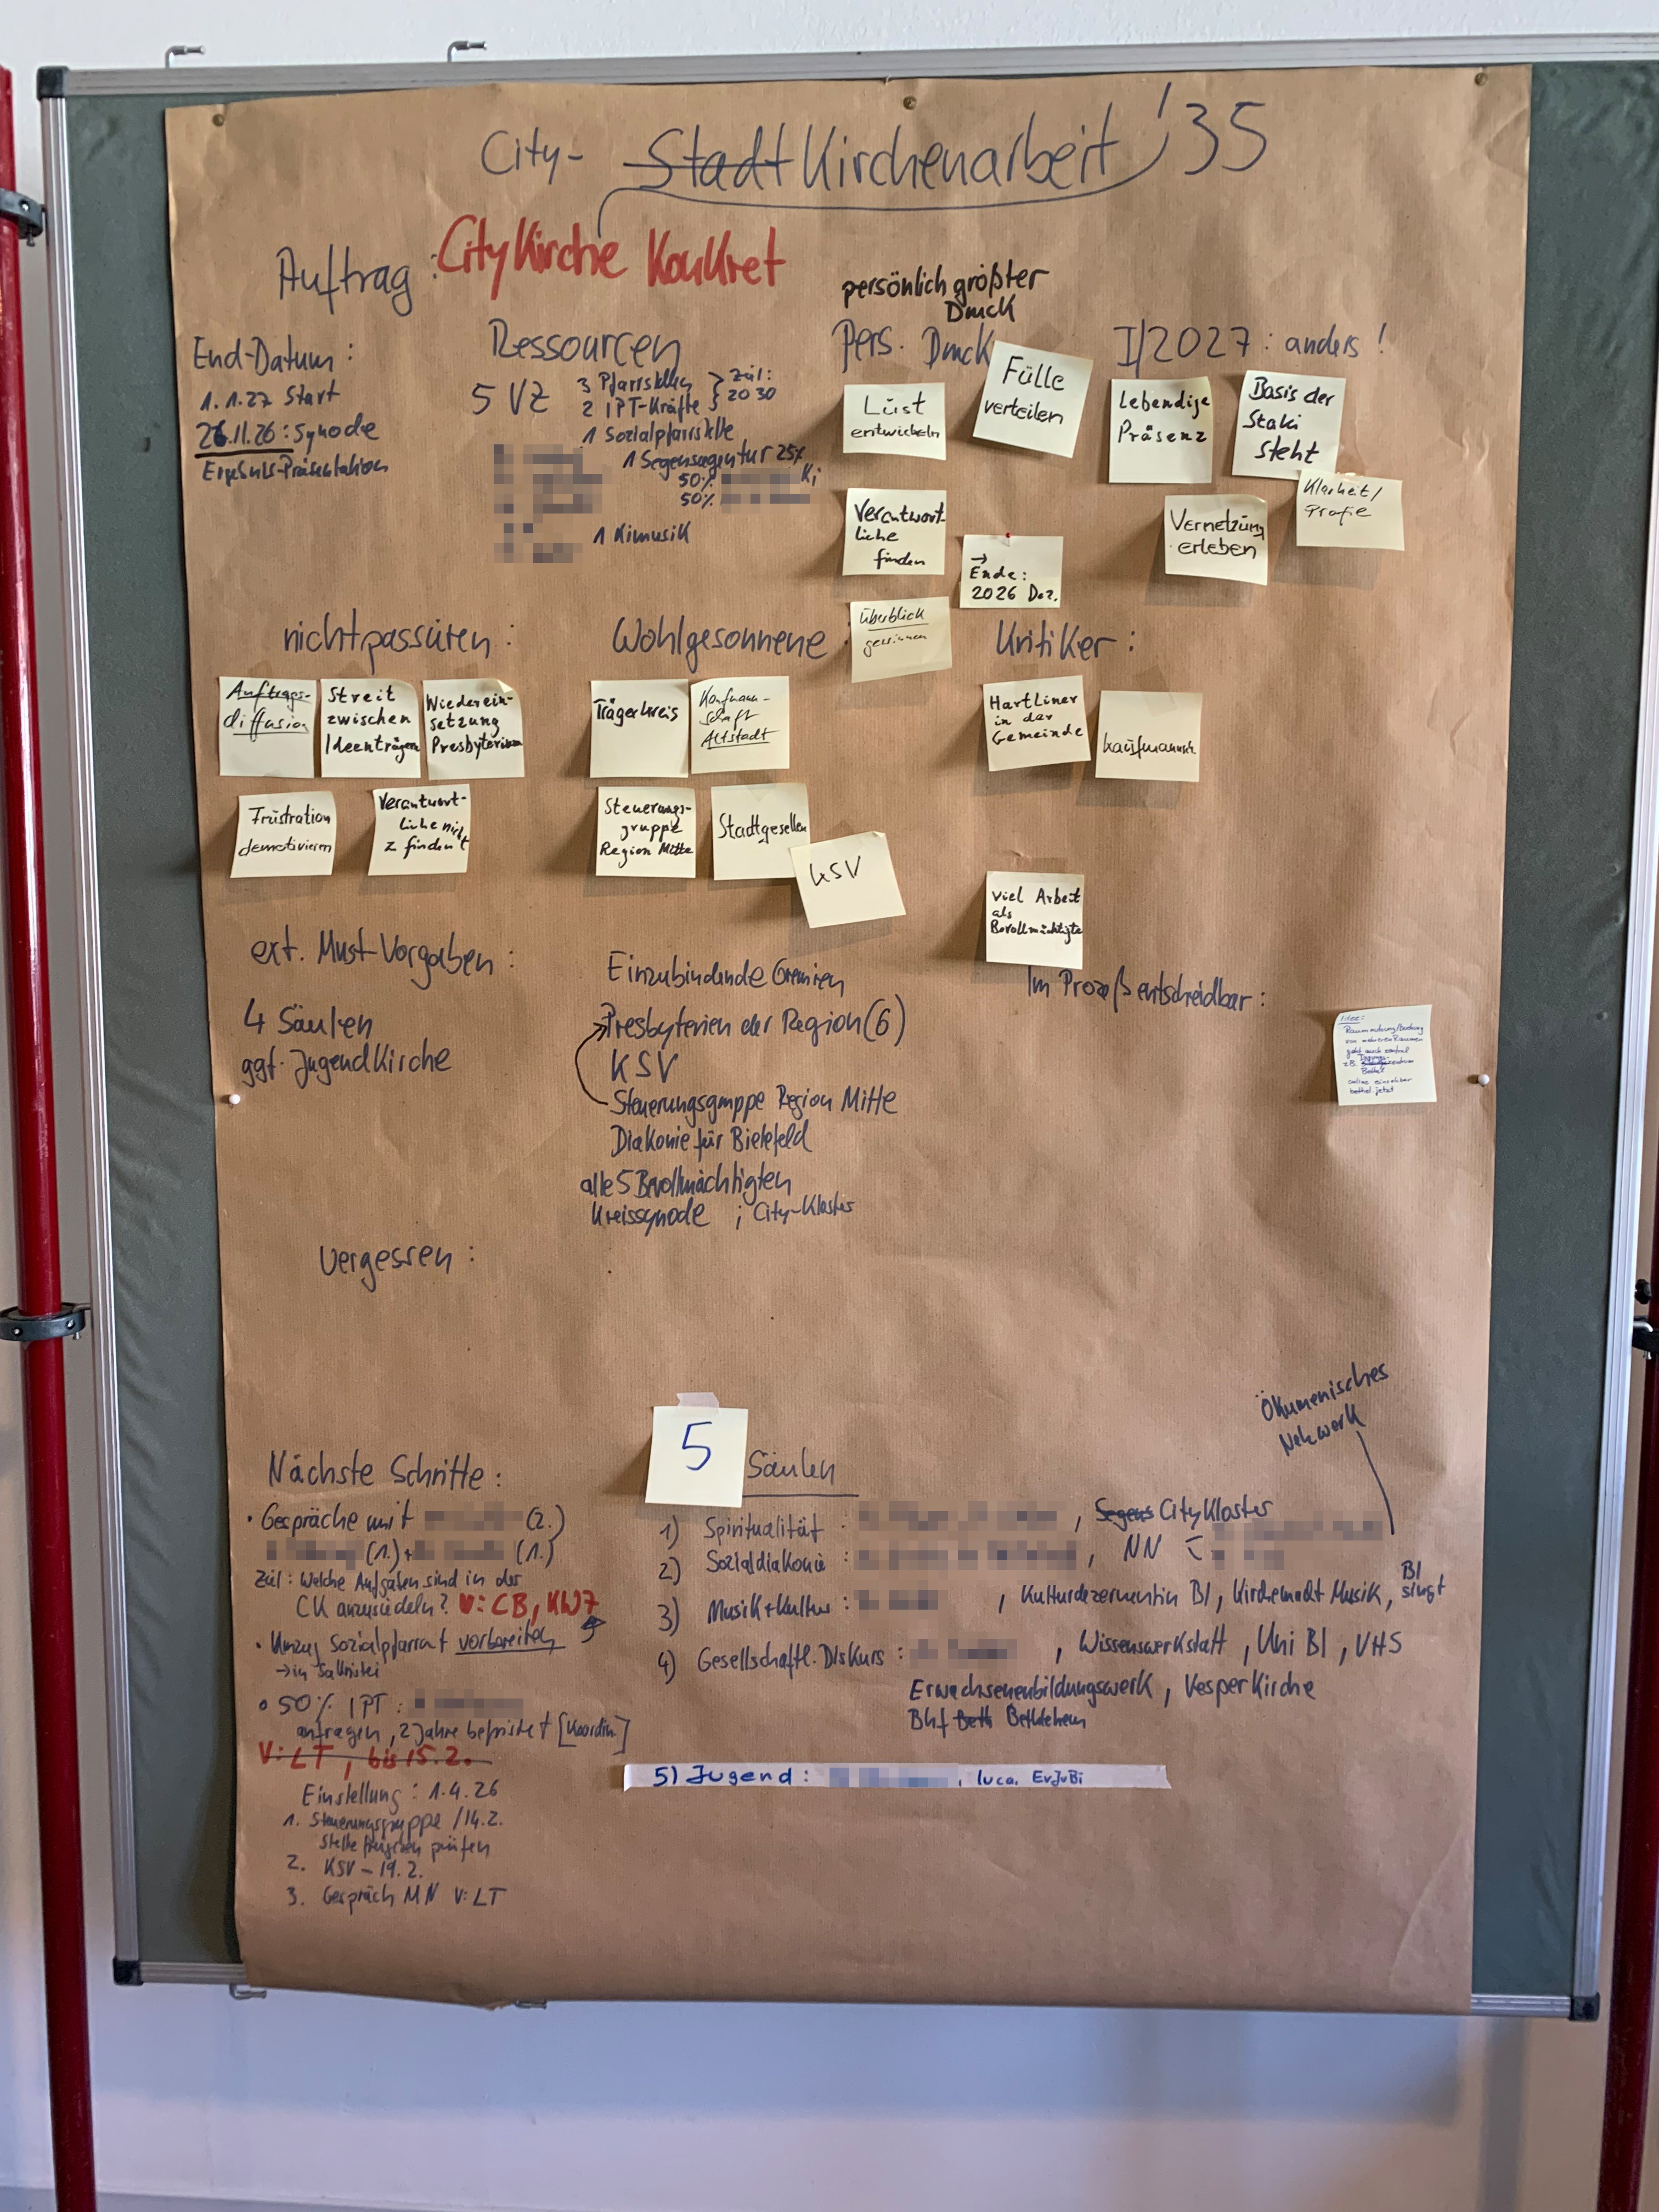 City- StadtKirchenarbeit '35
Auftrag: CityKirche Konkret
End-Datum:
1.1.27 Start
26.11.26: Synode
Ergebnis-Präsentation
Ressourcen
5 VZ
3 Pfarrstellen
2 IPT-Kräfte
Ziel:
2030
1 Sozialpfarrstelle
1 Segensagentur 25%
50% Ki
50%
1 Kimusik
persönlich größter
Druck
Pers. Druck
Lust
entwickeln
Fülle
verteilen
Verantwort-
liche
finden
→
Ende:
2026 Dez.
Überblick
gewinnen
I/2027: anders!
Lebendige
Präsenz
Basis der
Staki
steht
Vernetzung
erleben
Klarheit/
Profie
nicht passieren:
Auftrags-
diffusion
Streit
zwischen
Ideenträgern
Wiederein-
setzung
Presbyterium
Frustration
demotivieren
Verantwort-
liche nicht
z finden
Wohlgesonnene
Trägerkreis
Kaufmann-
schaft
Altstadt
Steuerungs-
gruppe
Region Mitte
Stadtgesellen
KSV
Kritiker:
HartLiner
in der
Gemeinde
kaufmannsch
viel Arbeit
als
Bevollmächtigte
ext. Must-Vorgaben:
4 Säulen
ggf. JugendKirche
Einzubindende Gremien
Presbyterien der Region (6)
KSV
Steuerungsgruppe Region Mitte
Diakonie für Bielefeld
alle 5 Bevollmächtigten
Kreissynode ; City-Kloster
Im Prozeß entscheidbar:
Idee:
Raumnutzung/Buchung
von mehreren Räumen
geht auch zentral
z.B.
Bethel
online einsehbar
bethel jetzt
Vergessen:
Nächste Schritte:
• Gespräche mit (2.)
(1.) + (1.)
Ziel: Welche Aufgaben sind in der
CK anzusiedeln? V: CB, KW7
• Umzug Sozialpfarramt vorbereiten
→ in Sakristei
• 50% IPT:
anfragen, 2 Jahre befristet [Koordin.]
V: LT, bis 15.2.
Einstellung: 1.4.26
1. Steuerungsgruppe /14.2.
Stelle prüfen
2. KSV – 19.2.
3. Gespräch MN V: LT
5 Säulen
Ökumenisches
Netzwerk
1) Spiritualität: , Segens CityKloster
2) Sozialdiakonie: , NN
3) Musik + Kultur: , Kulturdezernentin BI, Kirche macht Musik, BI singt
4) Gesellschaftl. Diskurs: , Wissenswerkstatt, Uni BI, VHS
Erwachsenenbildungswerk, VesperKirche
Bhf Beth Bethlehem
5) Jugend: , luca. EvJuBi